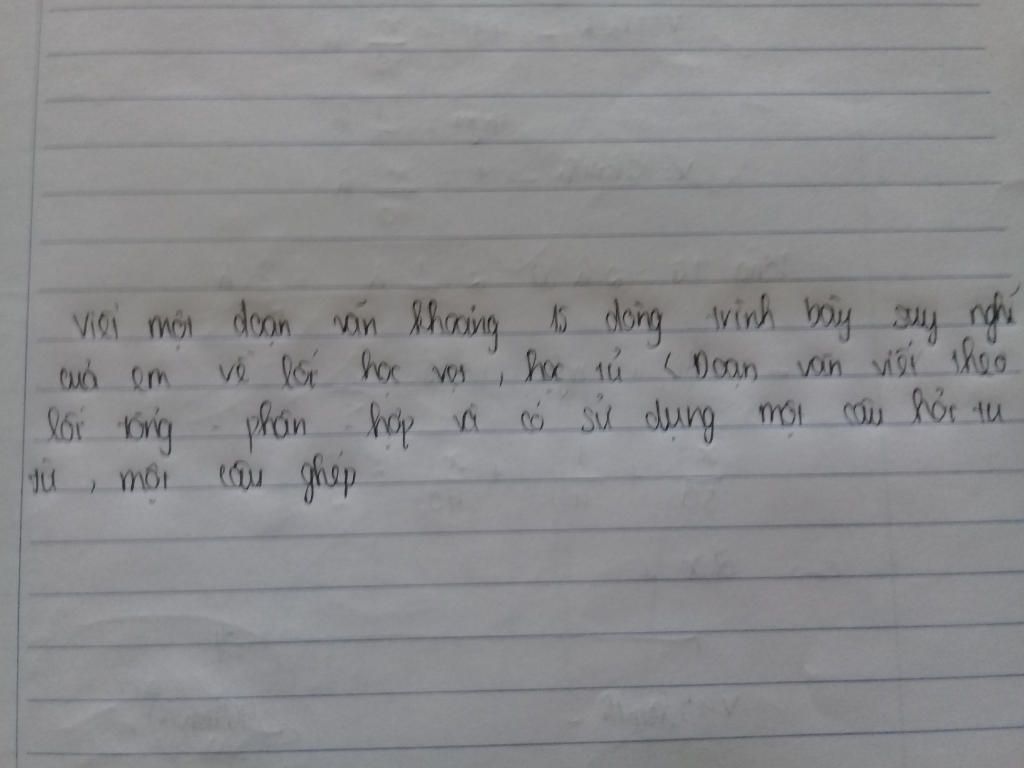 Viết một đoạn văn khoảng 15 dòng trình bày suy nghĩ
của em về lối học vẹt, học tủ (Đoạn văn viết theo
lối tổng - phân - hợp và có sử dụng một câu hỏi tu
từ, một câu ghép